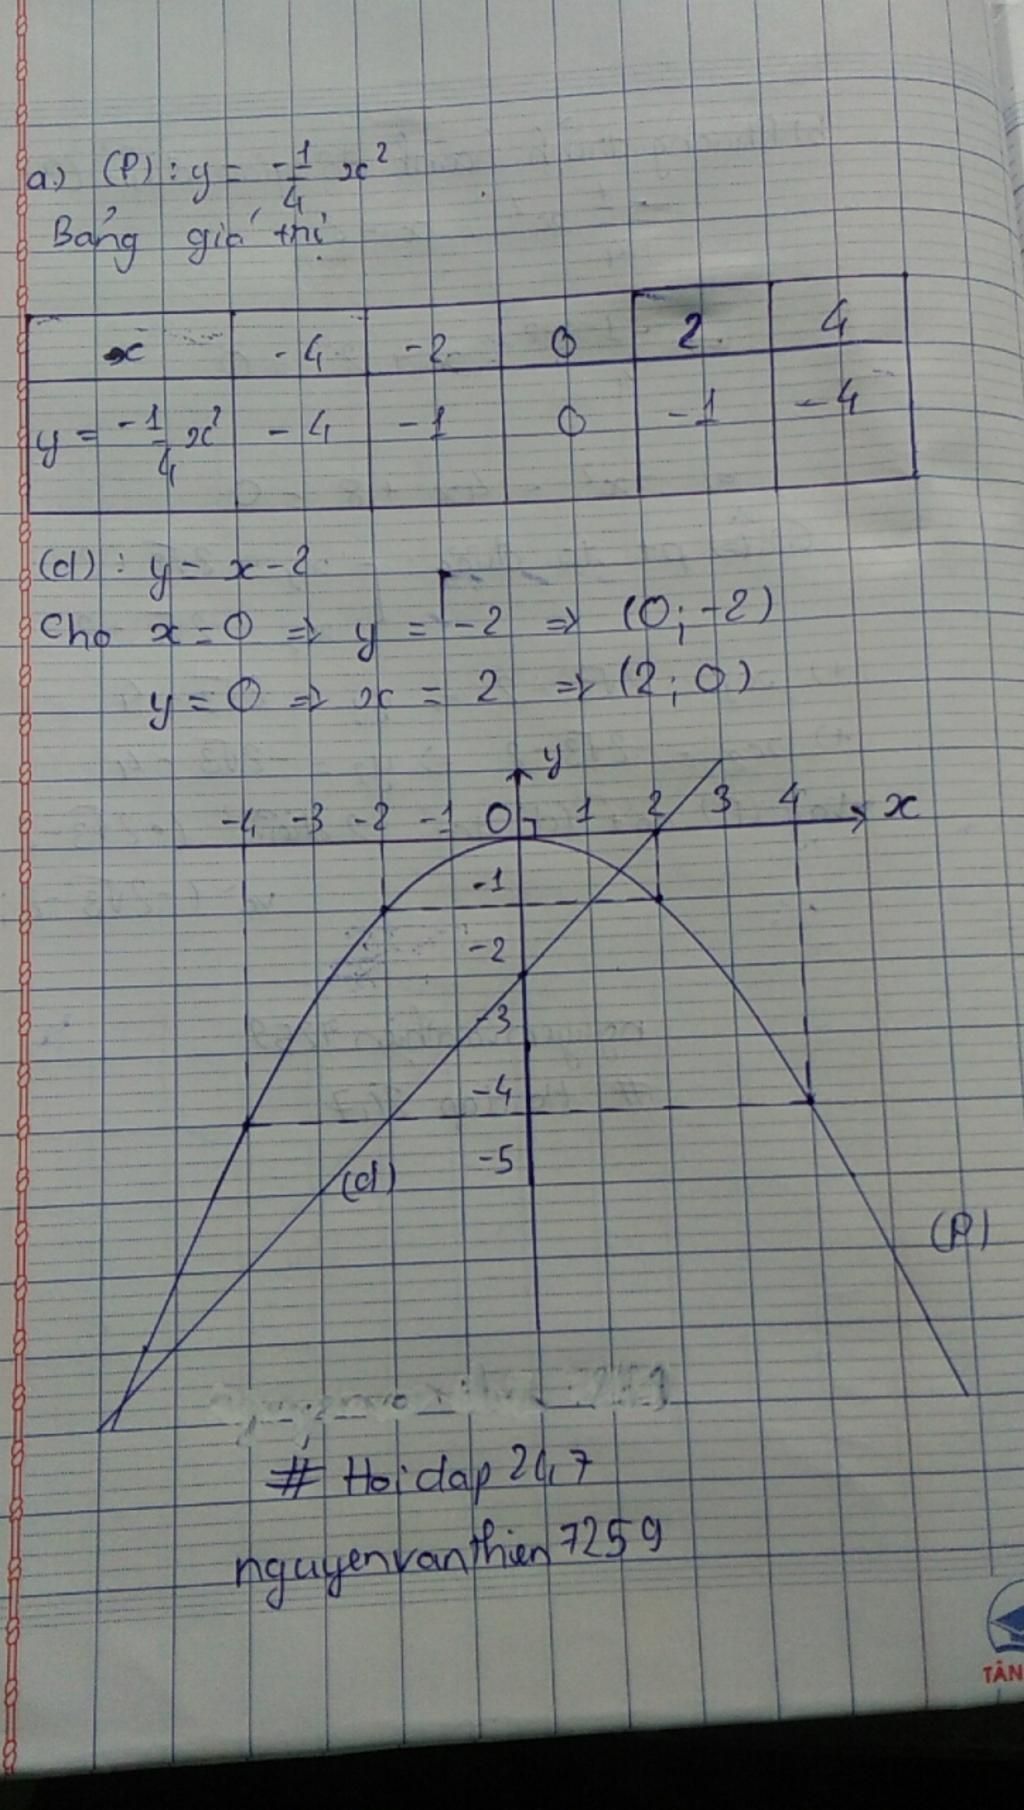 a.) (P): y = -1/4 x²
Bảng giá trị
x -4 -2 0 2 4
y = -1/4 x² -4 -1 0 -1 -4
(d): y = x-2
Cho x=0 => y = -2 => (0; -2)
y=0 => x = 2 => (2; 0)
y
-4 -3 -2 -1 0 1 2 3 4 x
-1
-2
-3
-4
-5
(d)
(P)
# Hoidap 247
nguyenvanthien7259
TÂN